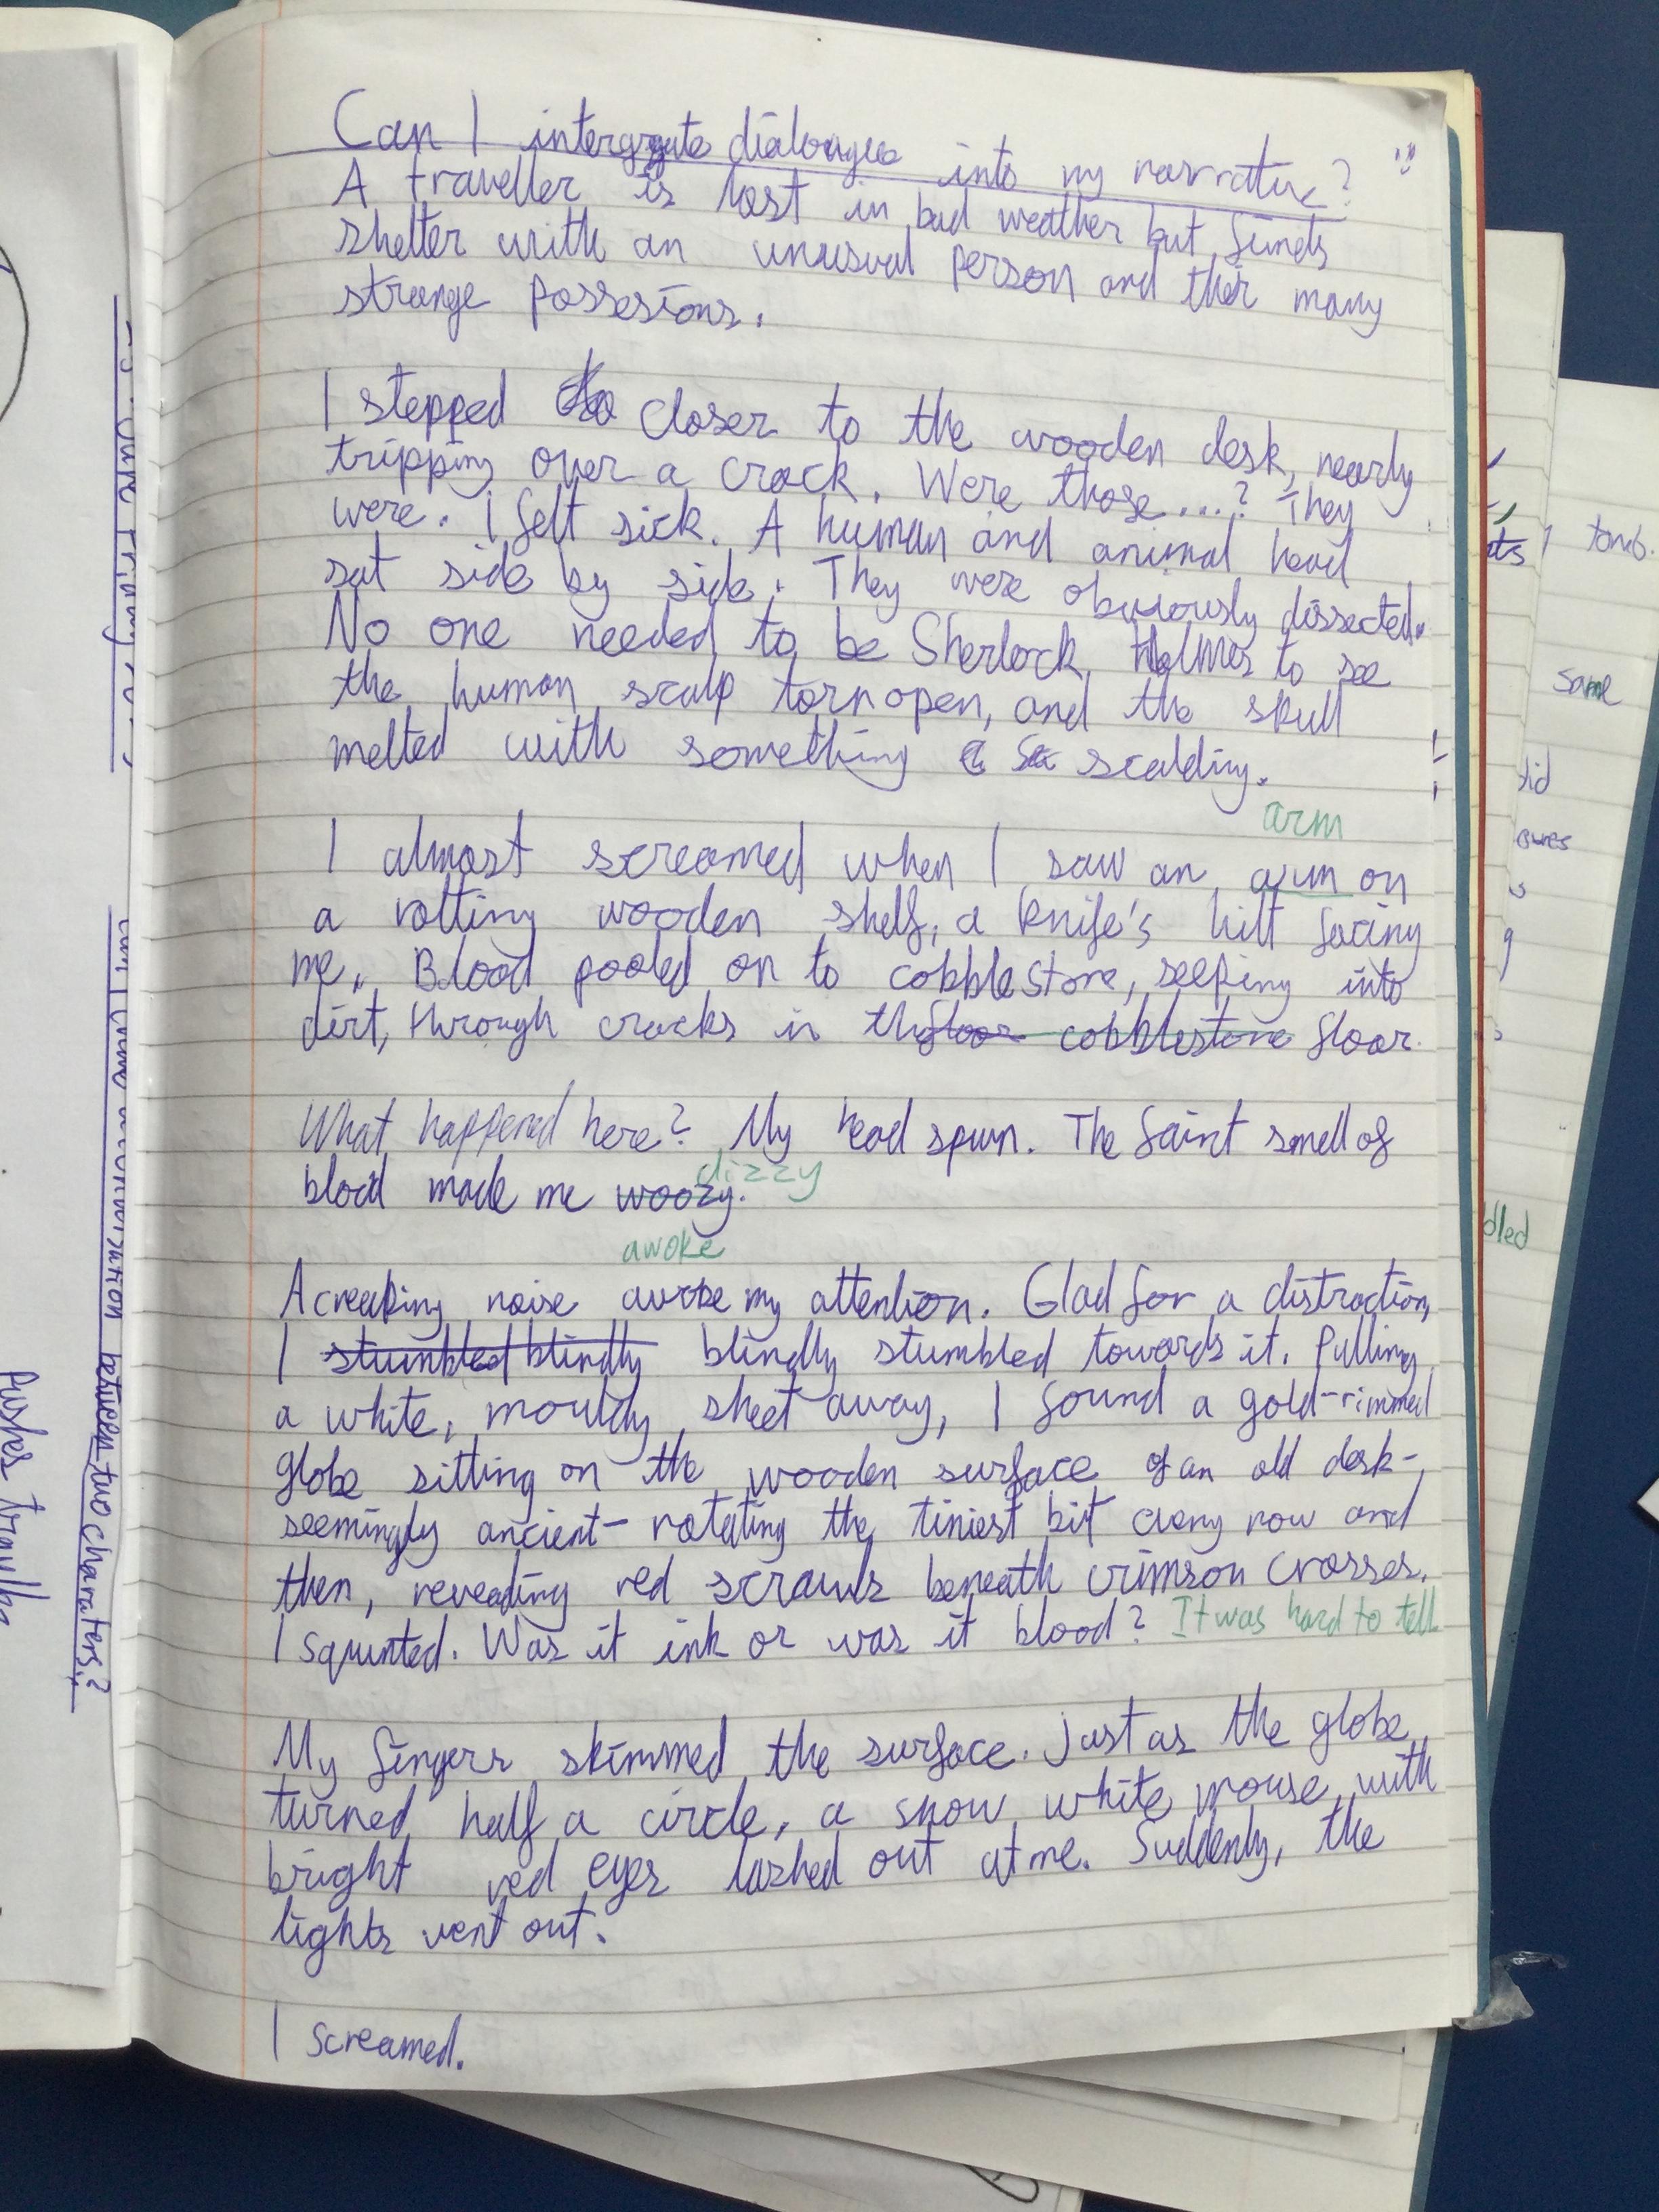 Can I intergrate dialouges into my narrative?
A traveller is lost in bad weather but finds
shelter with an unusual person and their many
strange possesions.
I stepped closer to the wooden desk, nearly
tripping over a crack. Were those...? They
were. I felt sick. A human and animal head
sat side by side. They were obviously dissected.
No one needed to be Sherlock Holmes to see
the human scalp torn open, and the skull
melted with something scalding.
arm
I almost screamed when I saw an arm on
a rotting wooden shelf, a knife's hilt facing
me. Blood pooled on to cobblestone, seeping into
dirt, through cracks in the floor cobblestone floor.
What happened here? My head spun. The faint smell of
blood made me woozy.
dizzy
awoke
A creaking noise awoke my attention. Glad for a distraction,
I stumbled blindly blindly stumbled towards it. Pulling
a white, mouldy sheet away, I found a gold-rimmed
globe sitting on the wooden surface of an old desk-
seemingly ancient- rotating the tiniest bit every now and
then, revealing red scrawls beneath crimson crosses.
I squinted. Was it ink or was it blood? It was hard to tell
My fingers skimmed the surface. Just as the globe
turned half a circle, a snow white mouse with
bright red eyes lashed out at me. Suddenly, the
lights went out.
I screamed.
between two charaters?
Pushes
tomb.
same
did
dled